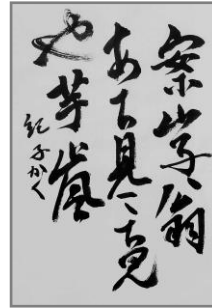 案山子翁
あち見こち見
や芋嵐
紀子かく